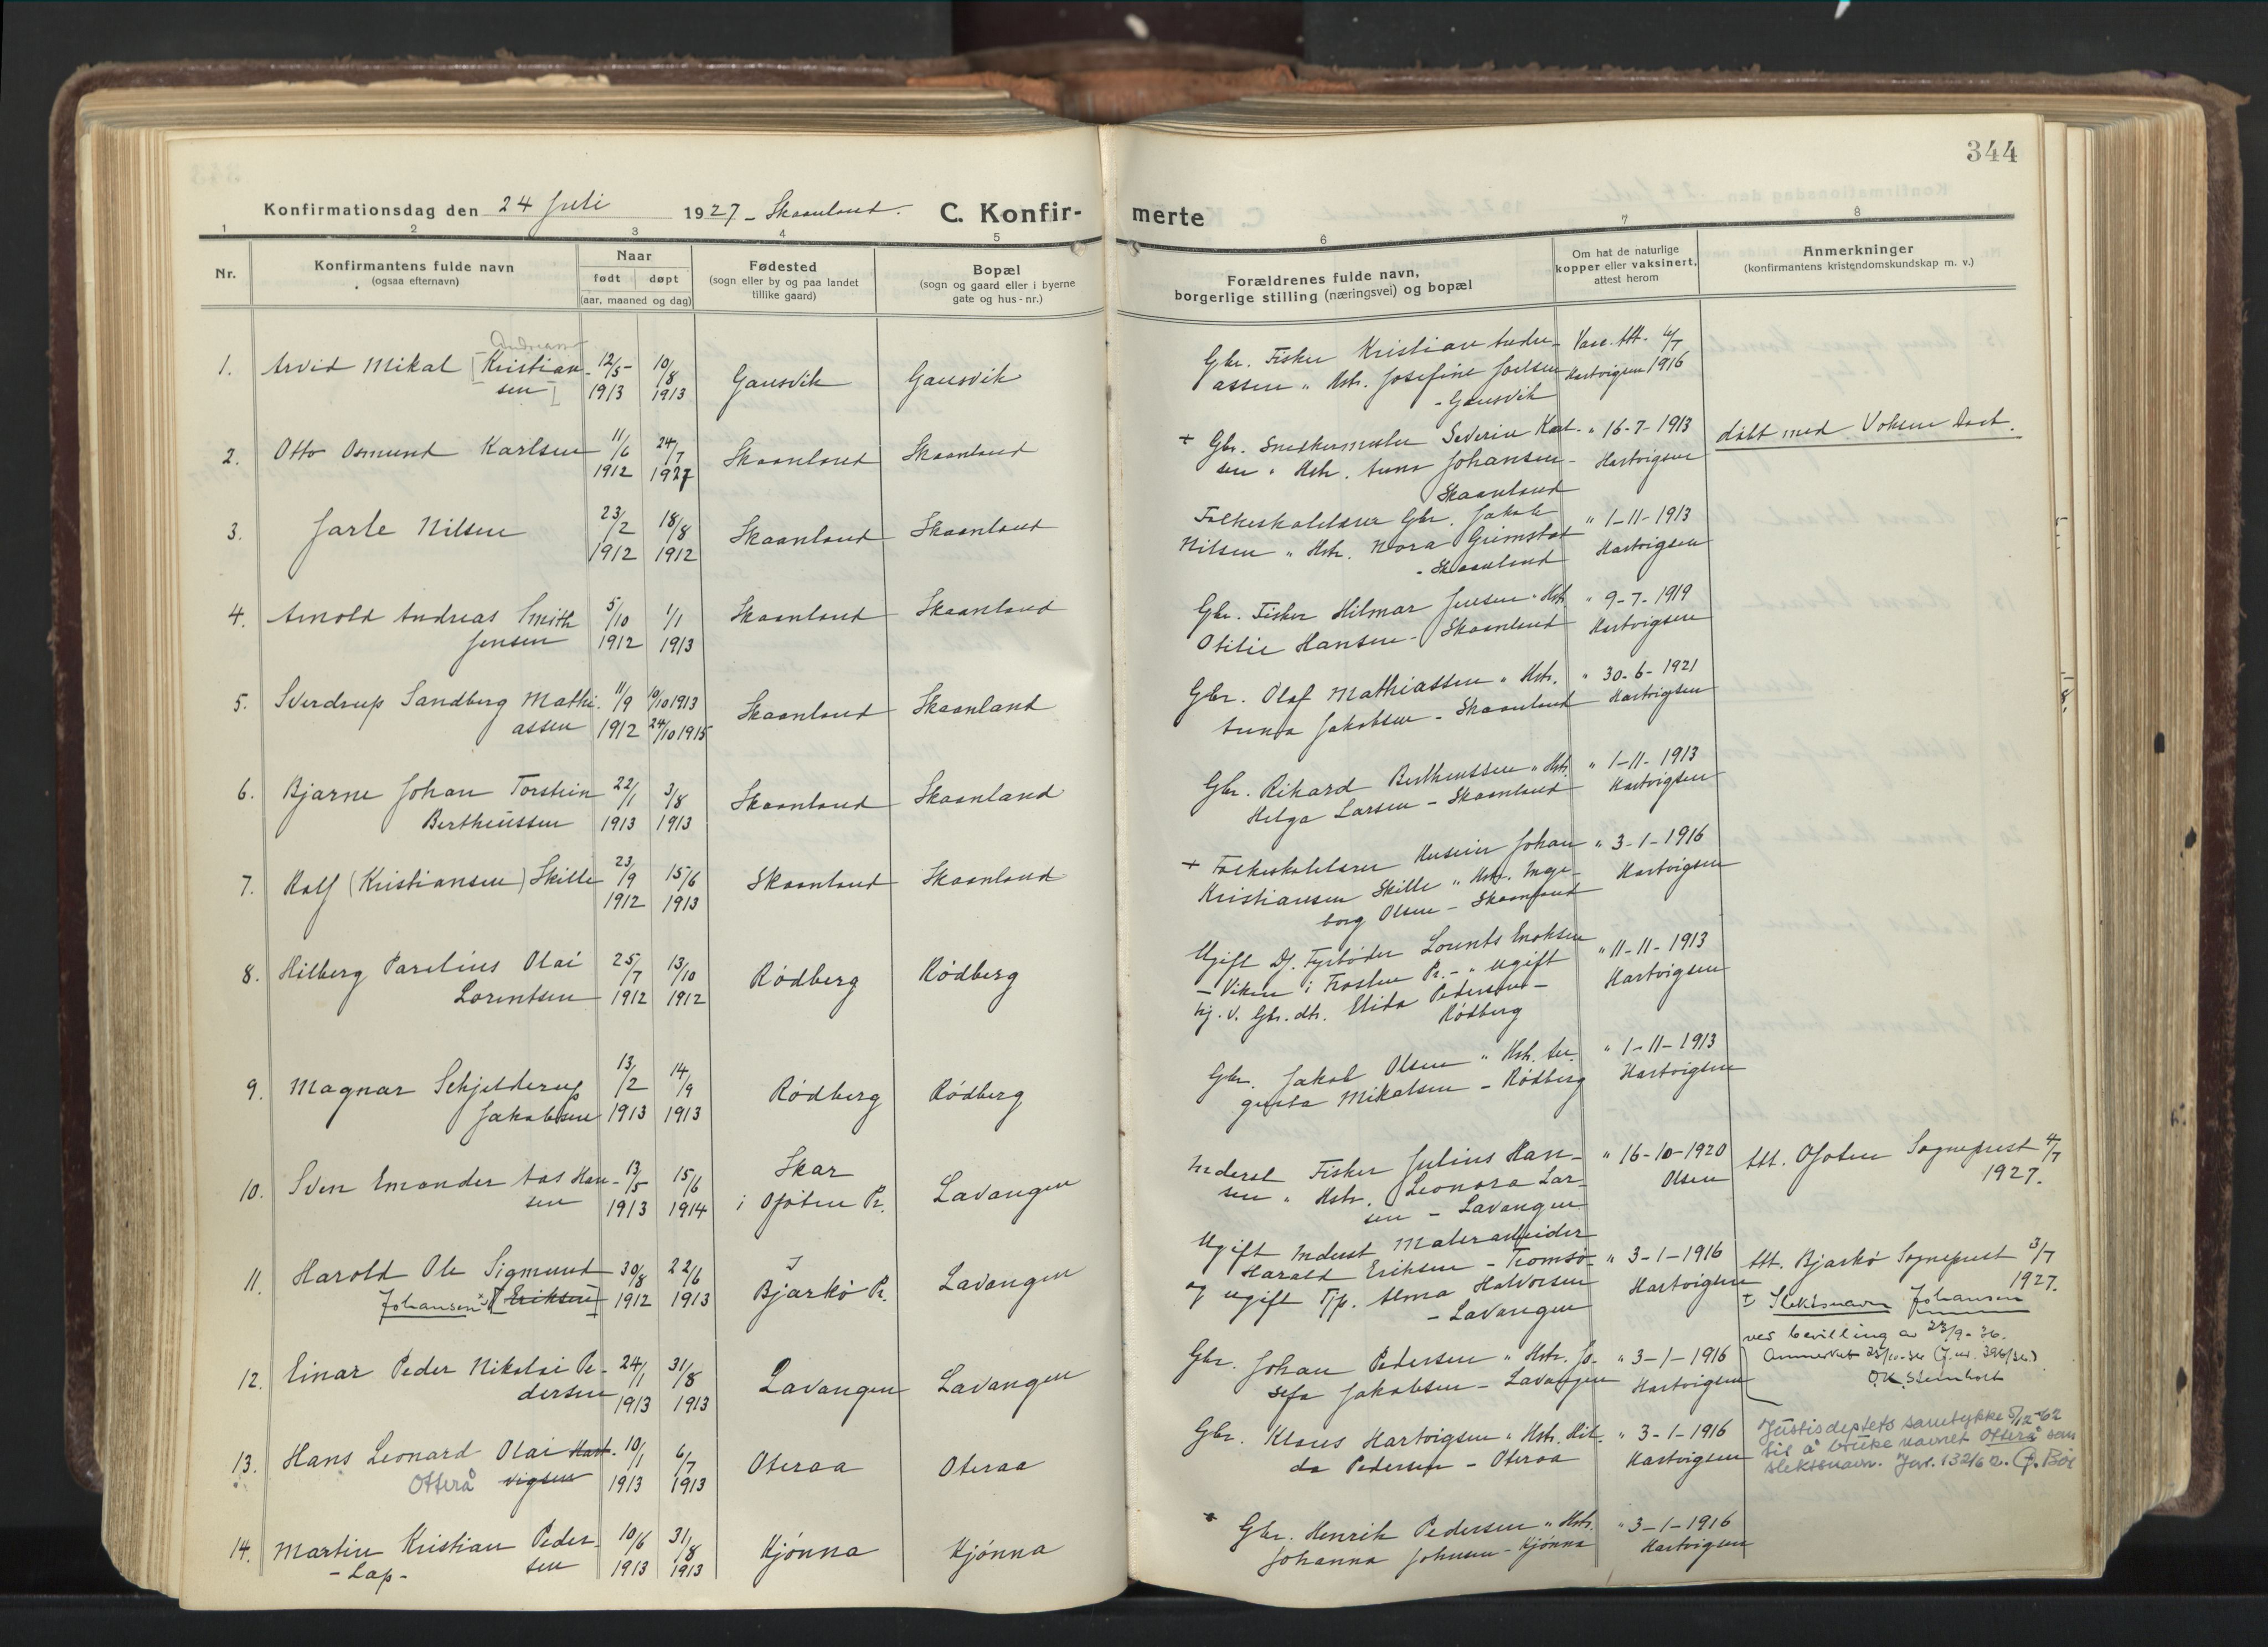 344
Konfirmationsdag den 24 Juli 1927 - Skaanland. C. Konfir-
merte
1 2 3 4 5
6 7 8
Nr.
Konfirmantens fulde navn
(ogsaa efternavn)
Naar
født døpt
(aar, maaned og dag)
Fødested
(sogn eller by og paa landet
tillike gaard)
Bopæl
(sogn og gaard eller i byerne
gate og hus-nr.)
Forældrenes fulde navn,
borgerlige stilling (næringsvei) og bopæl
Om hat de naturlige
kopper eller vaksinert,
attest herom
Anmerkninger
(konfirmantens kristendomskundskap m. v.)
Andreassen
1. Arvid Mikal [Kristian- 12/5 10/8 Gausvik Gausvik
sen] 1913 1913
Gbr. Fisker Kristian Andre- Vacc. Att. 4/7
assen " Hstr. Josefine Joelsen Hartvigsen 1916
- Gausvik
2. Otto Osmund Karlsen 11/6 24/7 Skaanland Skaanland
1912 1927
+ Gbr. Snekkermester Severin Karl- " 16-7-1913 døbt med Voksen Daab.
sen " Hstr. Anna Johansen - Hartvigsen
Skaanland
3. Jarle Nilsen 23/2 18/8 Skaanland Skaanland
1912 1912
Folkeskolelærer Gbr. Jakob " 1-11-1913
Nilsen " Hstr. Nora Grimstad Hartvigsen
- Skaanland
4. Arnold Andreas Smith 5/10 1/1 Skaanland Skaanland
Jensen 1912 1913
Gbr. Fisker Hilmar Jensen " Hstr. " 9-7-1919
Otilie Hansen - Skaanland Hartvigsen
5. Sverdrup Sandberg Mathi- 11/9 10/10 1913 Skaanland Skaanland
assen 1912 24/10 1915
Gbr. Olaf Mathiassen " Hstr. " 30-6-1921
Anna Jakobsen - Skaanland Hartvigsen
6. Bjarne Johan Torstein 22/1 3/8 Skaanland Skaanland
Bertheussen 1913 1913
Gbr. Rikard Bertheussen " Hstr. " 1-11-1913
Helga Larsen - Skaanland Hartvigsen
7. Ralf (Kristiansen) Skille 23/9 15/6 Skaanland Skaanland
1912 1913
+ Folkeskolelærer Huseier Johan " 3-1-1916
Kristiansen Skille " Hstr. Inge- Hartvigsen
borg Olsen - Skaanland
8. Hilberg Parelius Olai 25/7 13/10 Rødberg Rødberg
Lorentsen 1912 1912
Ugift Dj. Fyrbøder Lorents Enoksen " 11-11-1913
- Viken i Trosten Pr. - " ugift Hartvigsen
hj. v. Gbr. dtr. Elida Pedersen -
Rødberg
9. Magnar Schjelderup 13/2 14/9 Rødberg Rødberg
Jakobsen 1913 1913
Gbr. Jakob Olsen " Hstr. Au- " 1-11-1913
gusta Mikalsen - Rødberg Hartvigsen
10. Sven Emander Aas Han- 13/5 15/6 Skar Lavangen
sen 1913 1914 i Ofoten Pr.
Inderst Fisker Julius Han- " 16-10-1920 Att. Ofoten Sogneprest 4/7
sen " Hstr. Leonora Lar- Olsen 1927.
sen - Lavangen
11. Harold Ole Sigmund 30/8 22/6 I Lavangen
Johansen x) [Eriksen] 1912 1913 Bjarkø Pr.
Ugift Inderst Malerarbeider
Harald Eriksen - Tromsø " 3-1-1916 Att. Bjarkø Sogneprest 3/7
og ugift Tjp. Alma Halvorsen Hartvigsen 1927.
- Lavangen
x Slektsnavn Johansen
ved bevilling av 23/9-36.
Anmerket 25/11-36 (J. nr. 396/36.)
O.K. Steinholt
12. Einar Peder Nikolai Pe- 24/1 31/8 Lavangen Lavangen
dersen 1913 1913
Gbr. Johan Pedersen " Hstr. Jo- " 3-1-1916
sefa Jakobsen - Lavangen Hartvigsen
13. Hans Leonard Olai Hart- 10/1 6/7 Oteraa Oteraa
Otterå vigsen 1913 1913
Gbr. Klaus Hartvigsen " Hstr. Hil- " 3-1-1916
da Pedersen - Oteraa Hartvigsen
Justisdeptets samtykke 5/12-62
til å bruke navnet Otterå som
slektsnavn. Jnr. 132/62. P. Bøe
14. Martin Kristian Peder- 10/6 31/8 Kjønna Kjønna
- Lap - sen 1913 1913
* Gbr. Henrik Pedersen " Hstr. " 3-1-1916
Johanna Johnsen - Kjønna Hartvigsen